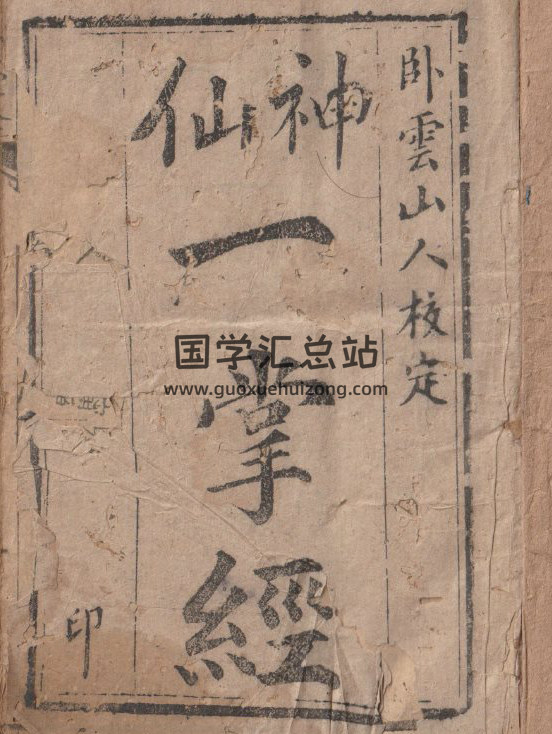 卧雲山人核定
神仙
一掌經
印
国学汇总站
www.guoxuehuizong.com